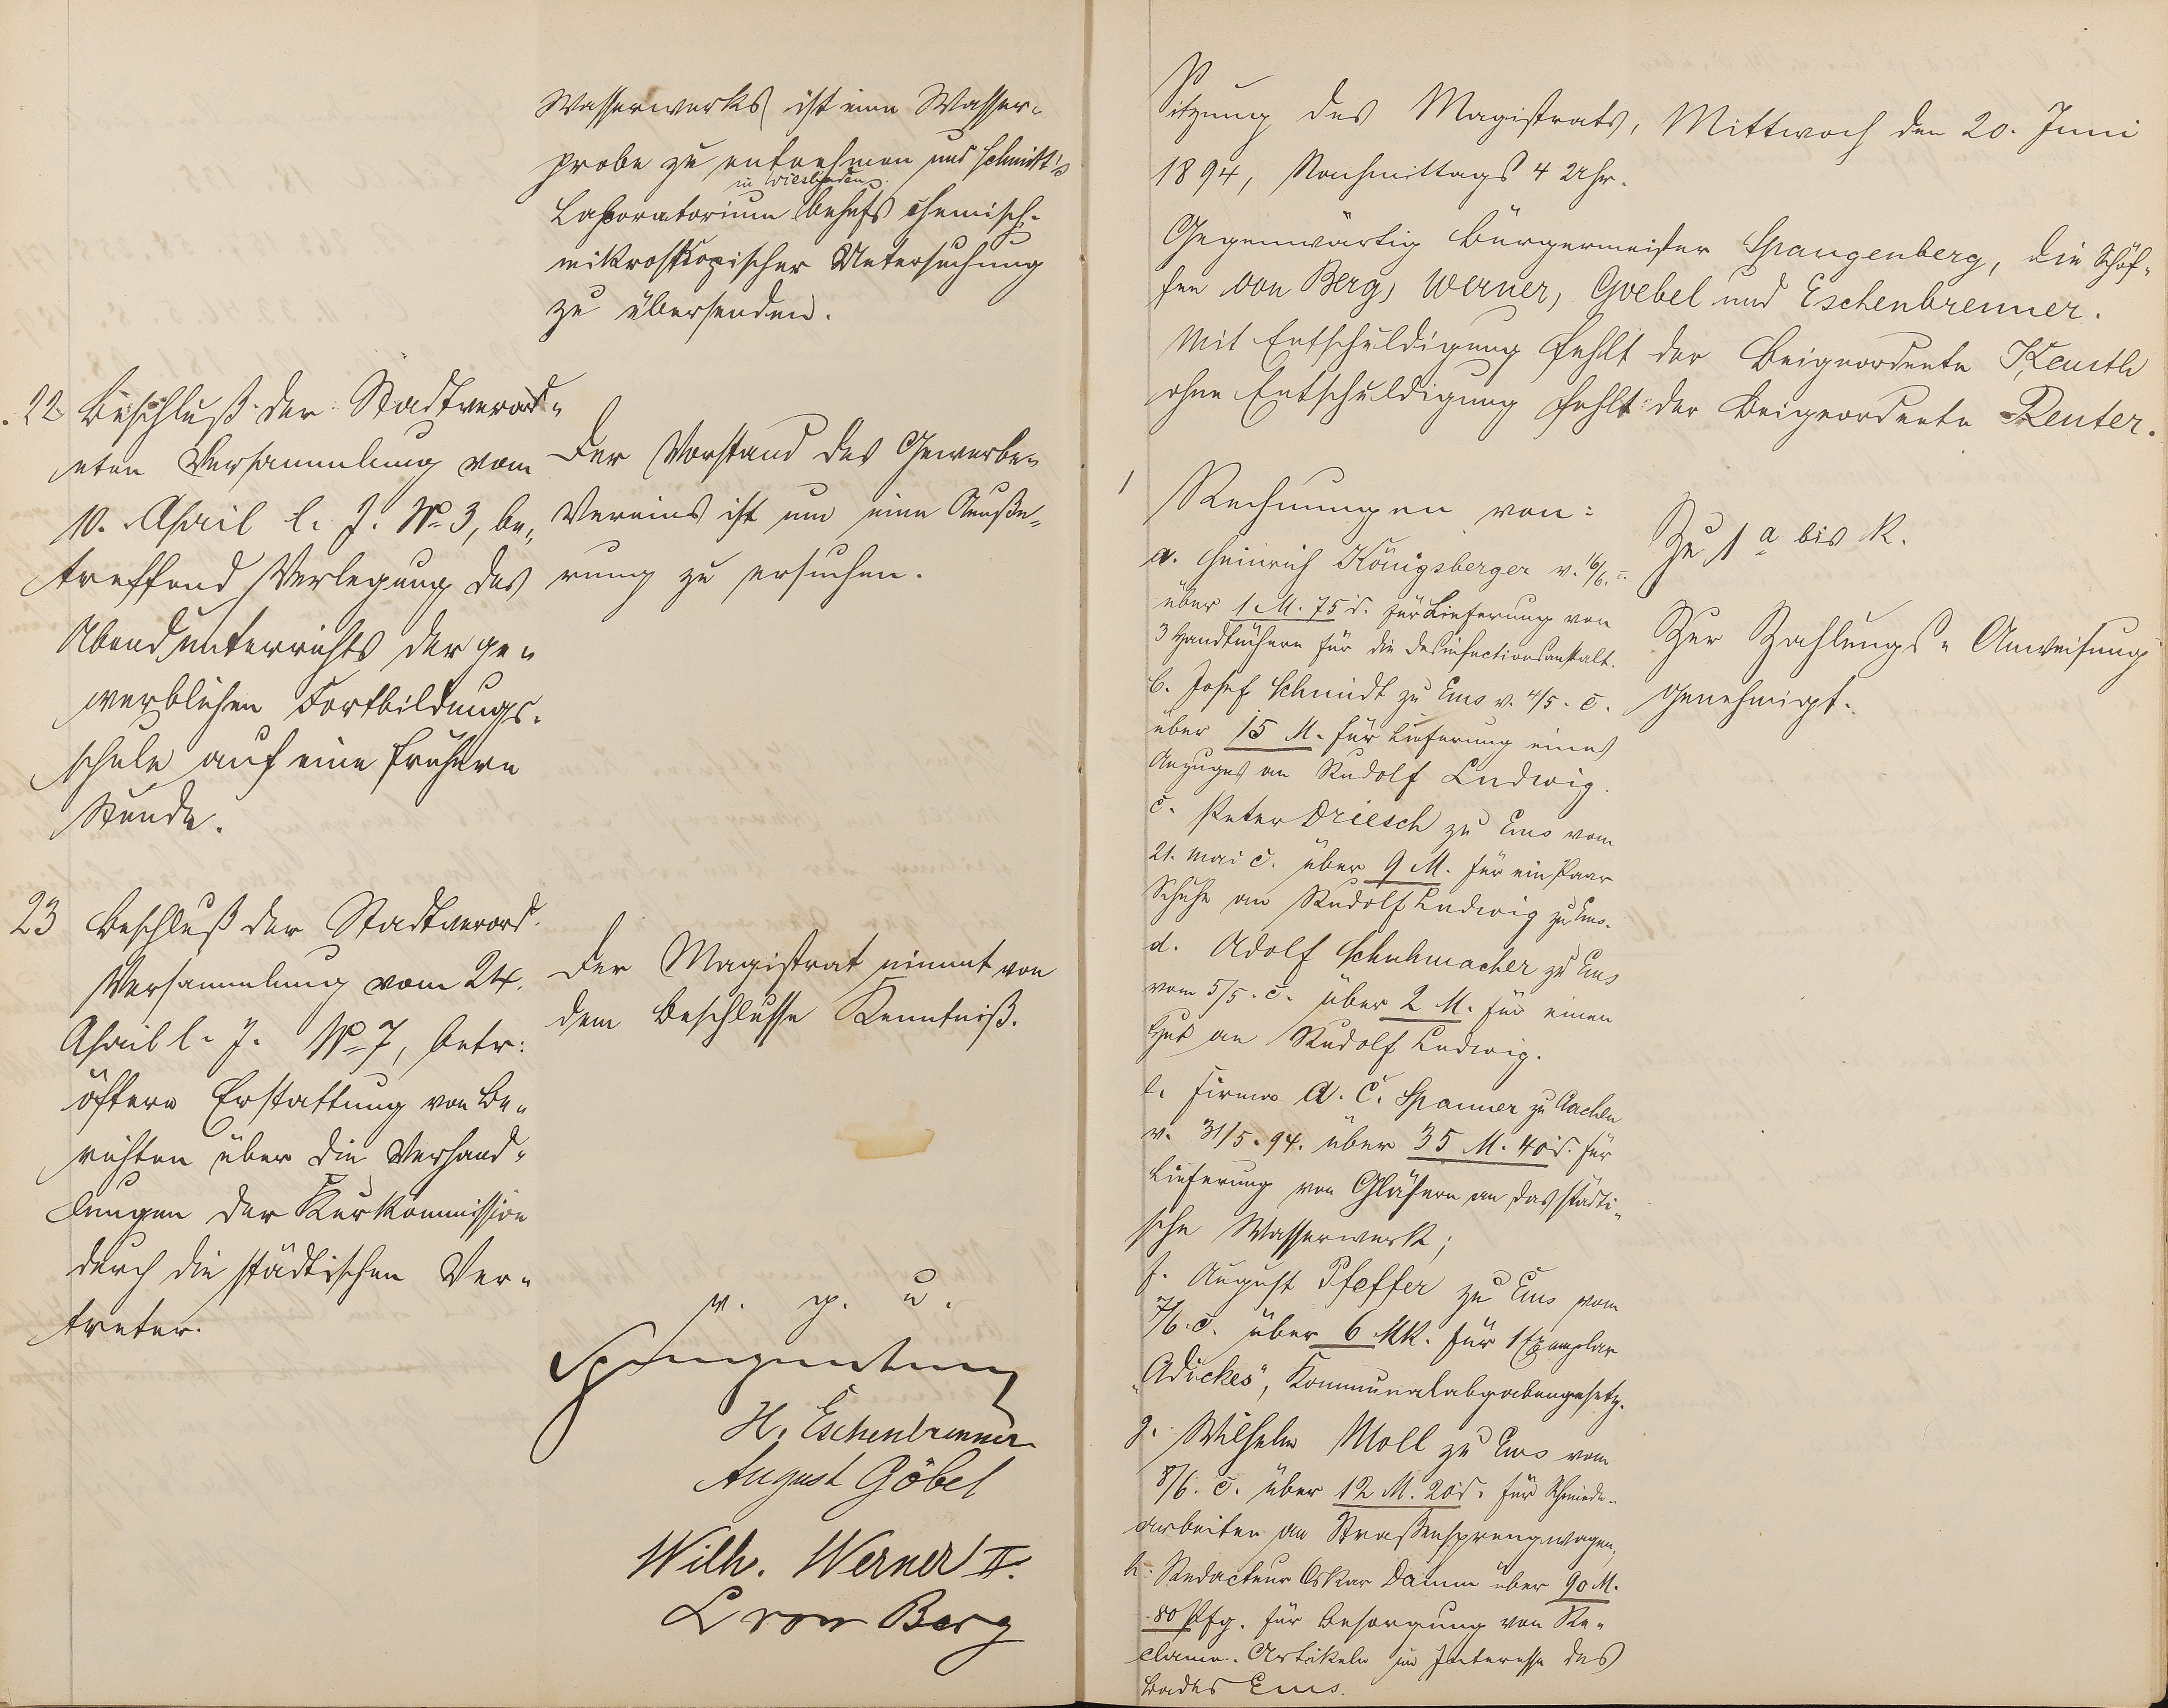 Wasserwerks ist eine Wasser-
probe zu entnehmen und Schmitt's
in Wiesbaden
Laboratorium behufs chemisch-
mikroskopischer Untersuchung
zu übersenden.
22 Beschluß der Stadtverord-
neten Versammlung vom
10. April l. J. No 3, be-
treffend Verlegung des
Abendunterrichts der ge-
werblichen Fortbildungs-
schule auf eine frühere
Stunde.
Der Vorstand des Gewerbe-
Vereins ist um eine Äuße-
rung zu ersuchen.
23 Beschluß der Stadtverord.
Versammlung vom 24.
April l. J. No 7, betr:
öftere Erstattung von Be-
richten über die Verhand-
lungen der Kurkommission
durch die städtischen Ver-
treter.
Der Magistrat nimmt von
dem Beschlusse Kenntniß.
v. g. u.
Spangenberg
H. Eschenbrenner
August Göbel
Wilh. Werner II.
L von Berg
Sitzung des Magistrats, Mittwoch den 20. Juni
1894, Nachmittags 4 Uhr.
Gegenwärtig Bürgermeister Spangenberg, die Schöf-
fen von Berg, Werner, Goebel und Eschenbrenner.
Mit Entschuldigung fehlt der Beigeordnete
ohne Entschuldigung fehlt der Beigeordnete Reuter.
1 Rechnungen von:
a. Heinrich Königsberger v. 16/6. c.
über 1 M. 75 d. für Lieferung von
3 Handtüchern für die Desinfectionsanstalt.
b. Josef Schmidt zu Ems v. 4/5. c.
über 15 M. für Lieferung eines
Anzuges an Rudolf Ludwig.
c. Peter Driesch zu Ems vom
21. Mai c. über 9 M. für ein Paar
Schuhe an Rudolf Ludwig zu Ems.
d. Adolf Schuhmacher zu Ems
vom 5/5. c. über 2 M. für einen
Hut an Rudolf Ludwig.
e. Firma A. C. Spanner zu Aachen
v. 31/5. 94. über 35 M. 40 d. für
Lieferung von Gläsern an das städti-
sche Wasserwerk;
f. August Pfeffer zu Ems vom
7/6. c. über 6 Mk. für 1 Exemplar
„Adickes", Kommunalabgabengesetz.
g. Wilhelm Moll zu Ems vom
8/6. c. über 12 M. 20 d. für Schmiede-
arbeiten an Straßensprengwagen,
h. Redacteur Oskar Damm über 90 M.
80 Pfg. für Besorgung von Re-
clame-Artikeln im Interesse des
Bades Ems.
Zu 1 a bis k.
Zur Zahlungs-Anweisung
genehmigt.